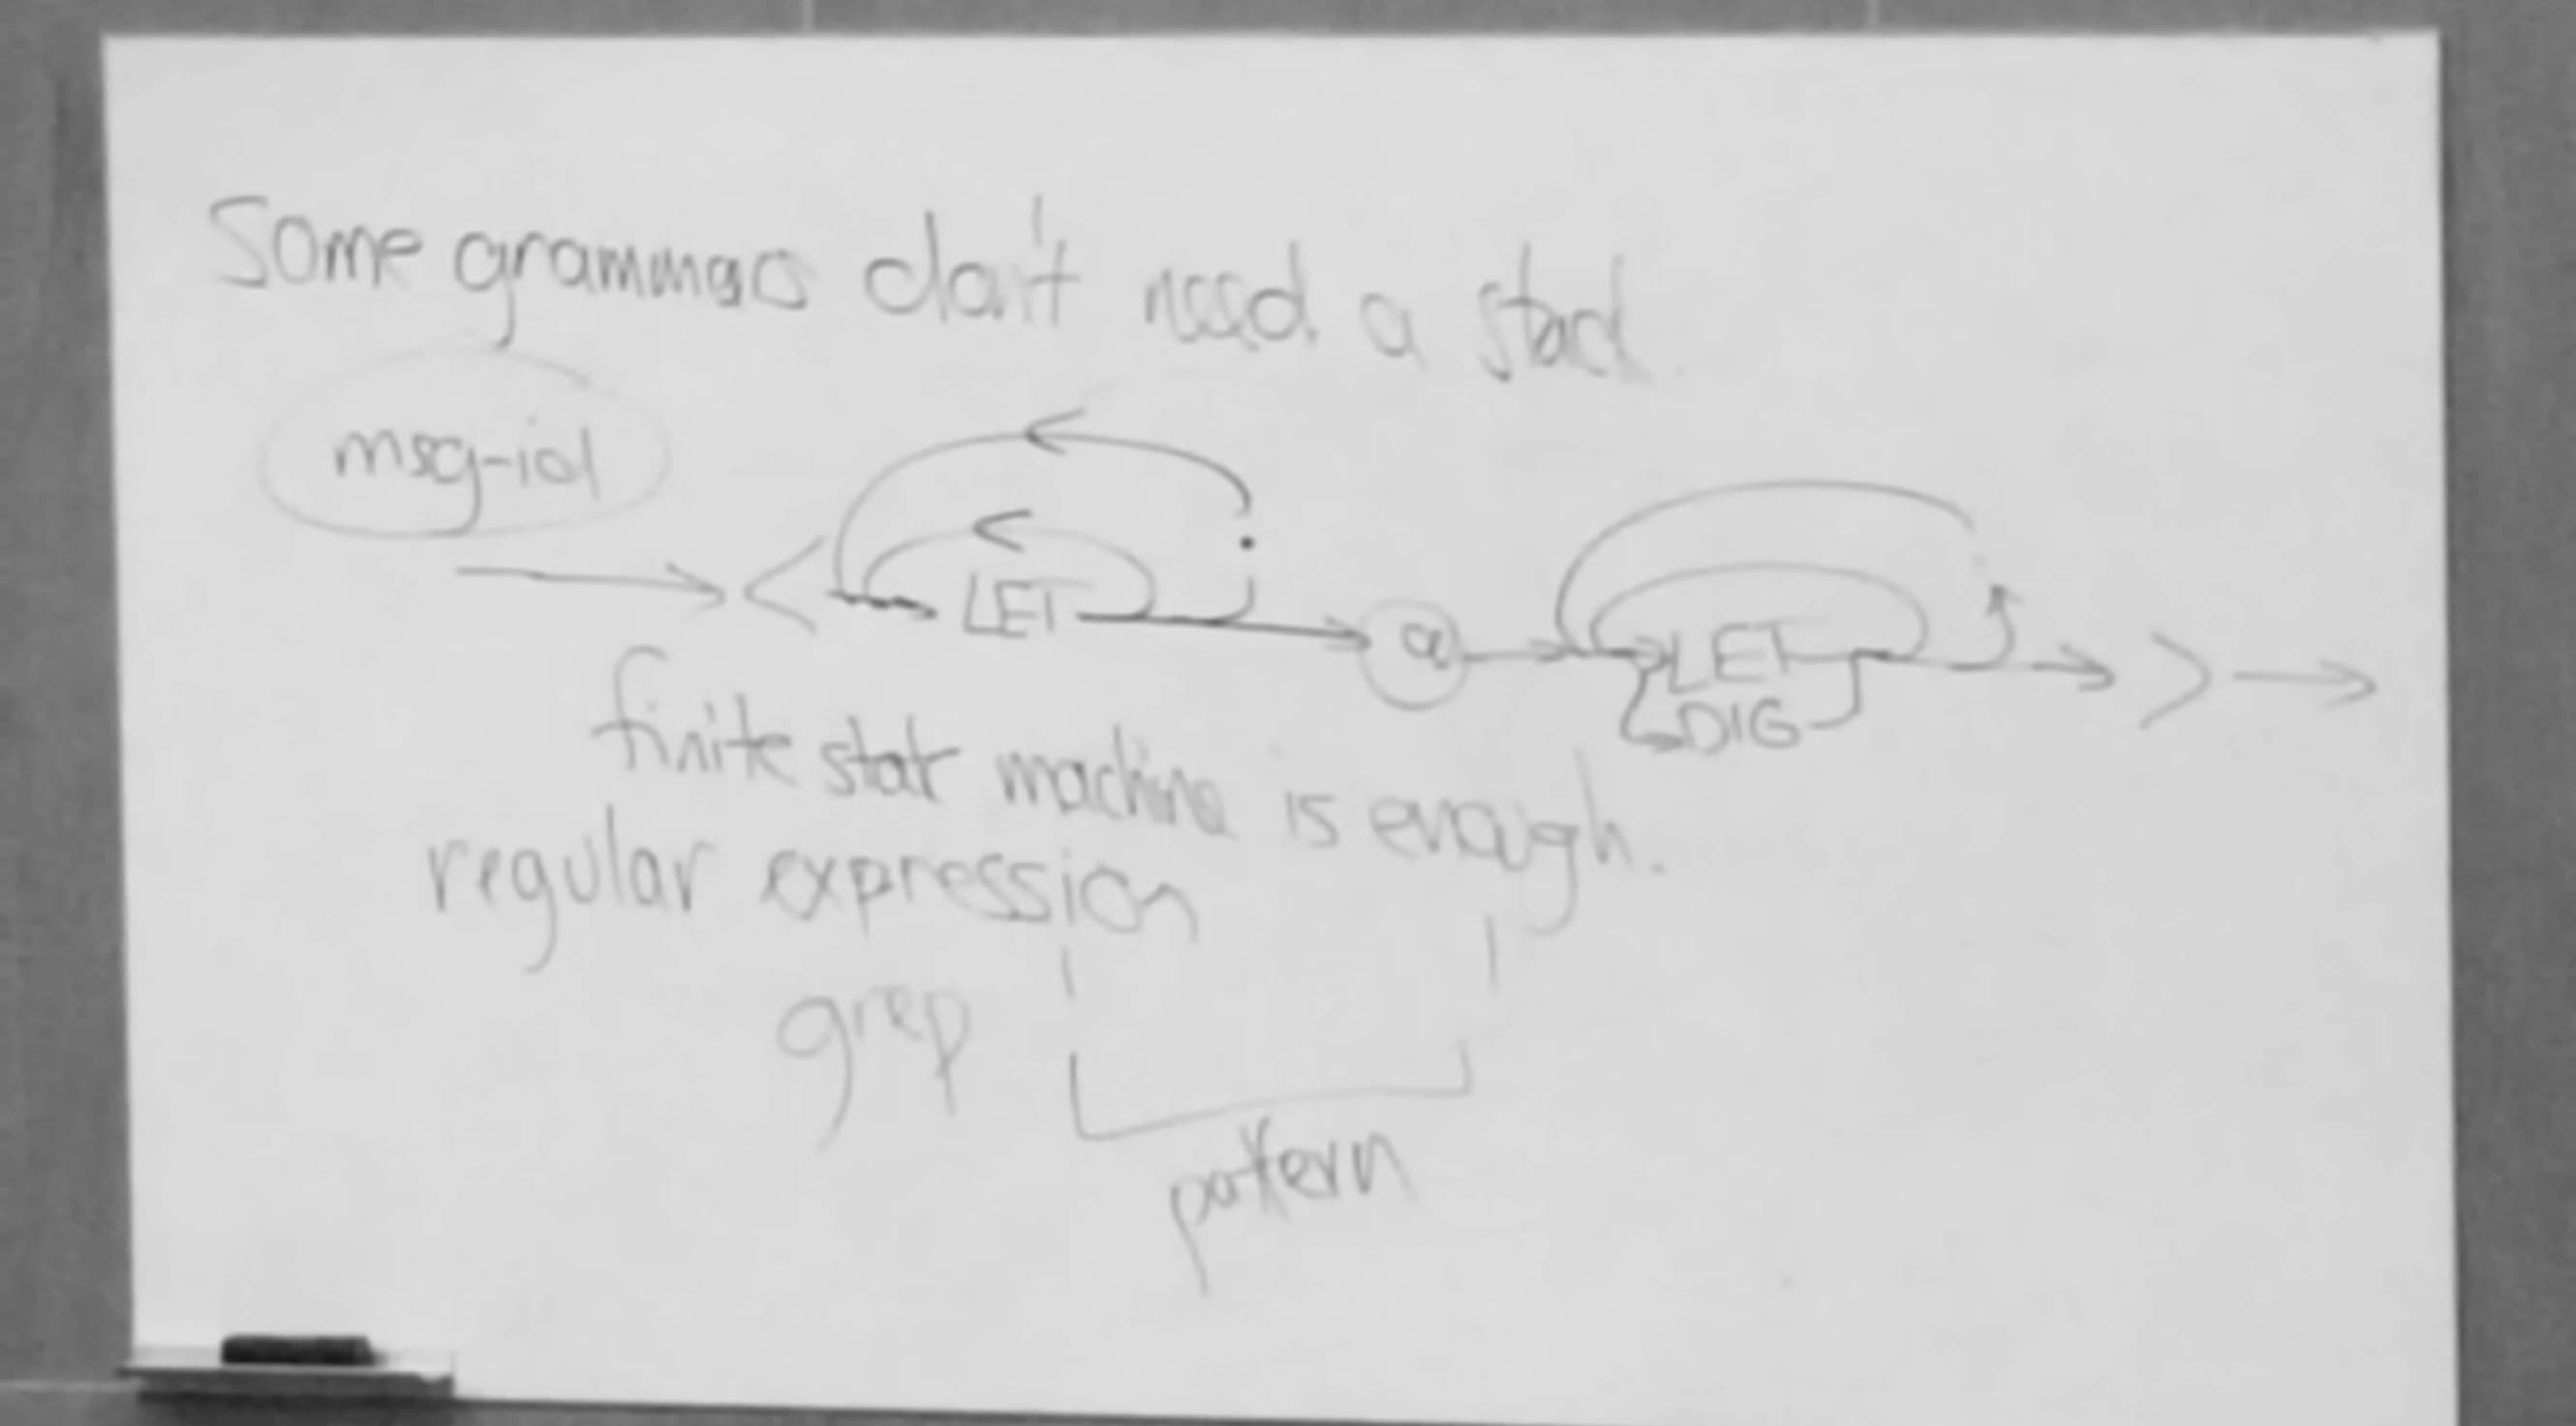 Some grammars don't need a stack.
msg-id
< LET . @ LET . >
DIG
finite state machine is enough.
regular expression
grep
pattern